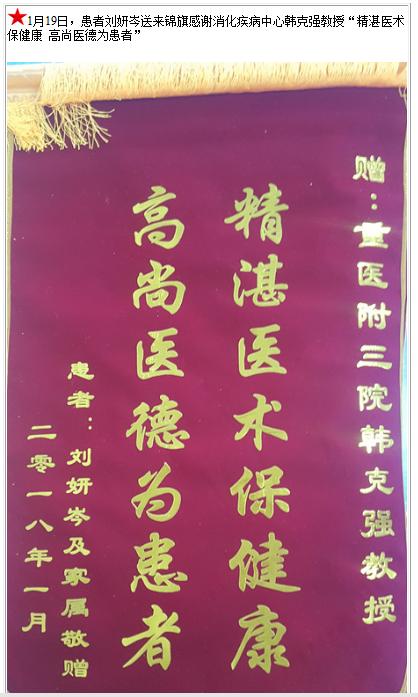 ★1月19日，患者刘妍岑送来锦旗感谢消化疾病中心韩克强教授“精湛医术
保健康 高尚医德为患者”
赠：重医附三院韩克强教授
精湛医术保健康
高尚医德为患者
患者：刘妍岑及家属敬赠
二零一八年一月